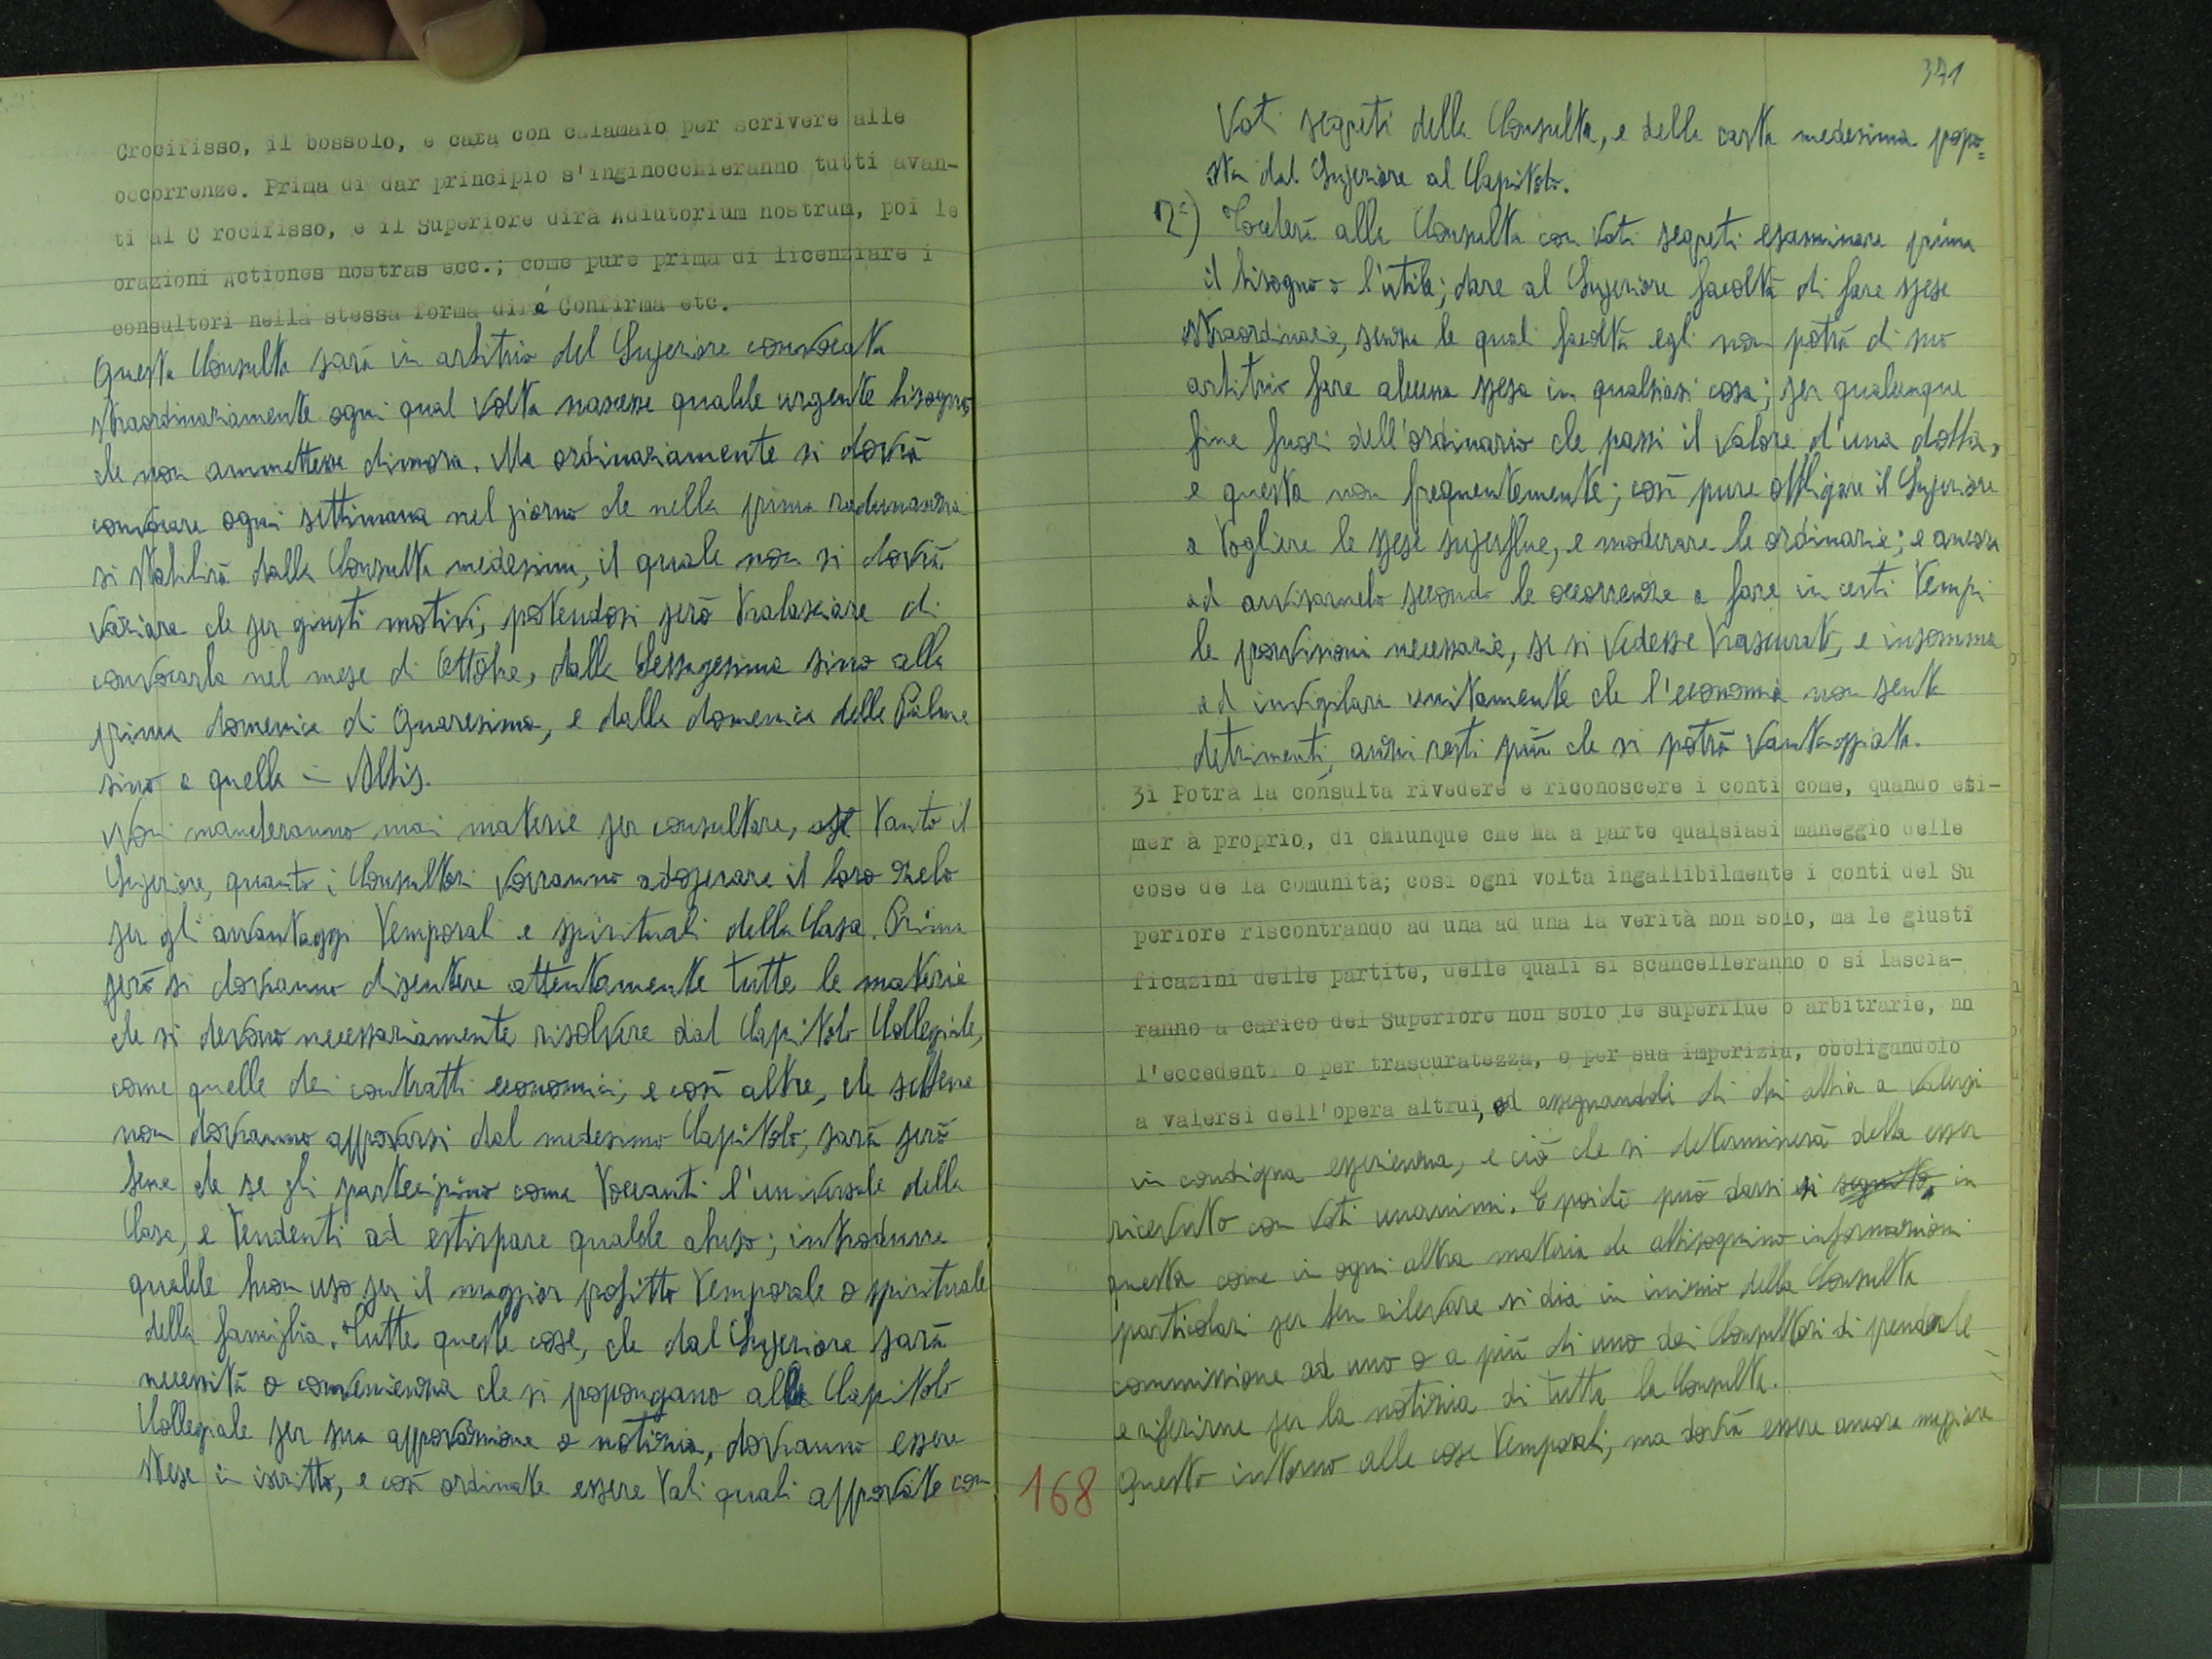 Crocifisso, il bossolo, e cata con calamaio per scrivere alle
occorrenze. Prima di dar principio s'inginocchieranno tutti avan-
ti al C rocifisso, e il Superiore dirà Adiutorium nostrum, poi le
orazioni Actiones nostras ecc.; come pure prima di licenziare i
consultori nella stessa forma dirá Confirma etc.
Questa Consulta sarà in arbitrio del Superiore convocata
straordinariamente ogni qual volta nascesse qualche urgente bisogno,
che non ammettesse dimora. Ma ordinariamente si dovrà
convocare ogni settimana nel giorno che nella prima radunanza
si stabilirà dalla Consulta medesima, il quale non si dovrà
variare che per giusti motivi, potendosi però tralasciare di
convocarla nel mese di Ottobre, dalla Sessagesima sino alla
prima domenica di Quaresima, e dalla domenica delle Palme
sino a quella in Albis.
Non mancheranno mai materie per consultare, se tanto il
Superiore, quanto i Consultori vorranno adoperare il loro zelo
per gli avvantaggi temporali e spirituali della Casa. Prima
però si dovranno discutere attentamente tutte le materie
che si devono necessariamente risolvere dal Capitolo Collegiale,
come quelle dei contratti economici, e così altre, che sebbene
non dovranno approvarsi dal medesimo Capitolo, sarà però
bene che se gli partecipino come toccanti l'universale della
Casa, e tendenti ad estirpare qualche abuso; introdurre
qualche buon uso per il maggior profitto temporale o spirituale
della famiglia. Tutte queste cose, che dal Superiore sarà
necessità o convenienza che si propongano alle Capitolo
Collegiale per sua approvazione o notizia, dovranno essere
stese in iscritto, e così ordinate essere tali quali approvate con
371
voti segreti della Consulta, e della carta medesima propo=
sta dal Superiore al Capitolo.
2°) Toccherà alla Consulta con voti segreti esaminare prima
il bisogno o l'utile; dare al Superiore facoltà di fare spese
straordinarie, senza le quali facoltà egli non potrà di suo
arbitrio fare alcuna spesa in qualsiasi cosa; per qualunque
fine fuori dell'ordinario che passi il valore d'una dobla,
e questa non frequentemente; così pure obbligare il Superiore
a togliere le spese superflue, e moderare le ordinarie; e ancora
ad avvisarnelo secondo le occorrenze a fare in certi tempi
le provvisioni necessarie, se si vedesse trascurato, e insomma
ad invigilare unitamente che l'economia non senta
detrimenti, anzi resti più che si potrà vantaggiata.
3ì Potrà la consulta rivedere e riconoscere i conti come, quando esi-
mer à proprio, di chiunque che ha a parte qualsiasi maneggio delle
cose de la comunità; così ogni volta ingallibilmente i conti del Su
periore riscontrando ad una ad una la verità non solo, ma le giusti
ficazini delle partite, delle quali si scancelleranno o si lascia-
ranno a carico del Superiore non solo le superflue o arbitrarie, nn
l'eccedenti o per trascuratezza, o per sua imperizia, obbligandolo
a valersi dell'opera altrui, od assegnandoli di chi abbia a valersi
in condigna esperienza, e ciò che si determinerà debba esser
ricevuto con voti unanimi. E poichè può darsi si seguito, in
questa come in ogni altra materia che abbisognino informazioni
particolari per ben rilevare si dia in inizio della Consulta
commissione ad uno o a più di uno dei Consultori di prenderle
e riferirne per la notizia di tutta la Consulta.
168 Questo intorno alle cose temporali, ma dovrà essere ancora maggiore